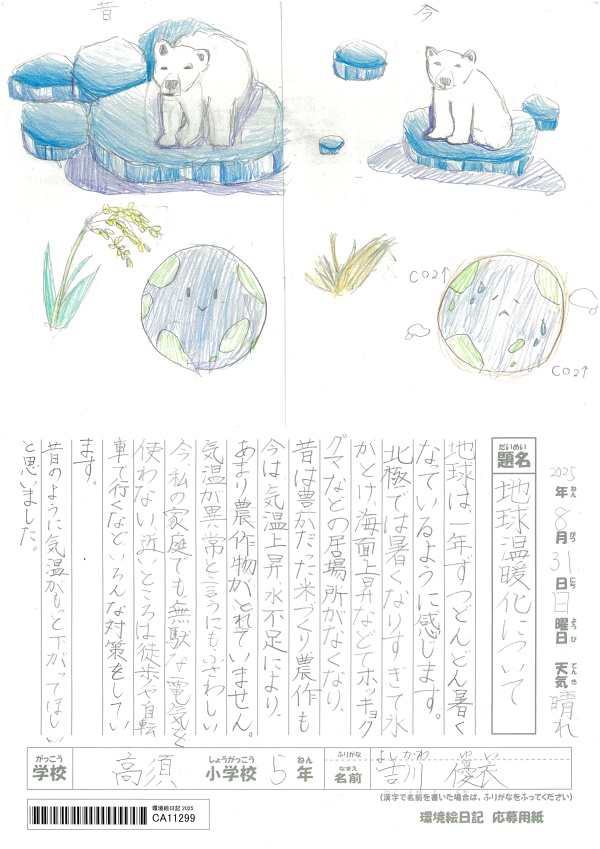 昔
今
CO2↑
CO2↑
2025年8月31日日曜日 天気 晴れ
ねん
がつ
にち
ようび
てんき
だいめい
題名
地球温暖化について
地球は一年ずつどんどん暑く
なっているように感じます。
北極では暑くなりすぎて氷
がとけ、海面上昇などでホッキョク
グマなどの居場所がなくなり、
昔は豊かだった米づくり農作も
今は、気温上昇、水不足により、
あまり農作物がとれていません。
気温が異常と言うにもふさわしい
今、私の家庭でも無駄な電気を
使わない、近いところは徒歩や自転
車で行くなどいろんな対策をしてい
ます。
昔のように気温がもっと下がってほしい
と思いました。
がっこう
学校
高須
しょうがっこう
小学校
5
ねん
年
ふりがな
よしかわ
なまえ
名前
吉川 優衣
(漢字で名前を書いた場合は、ふりがなをふってください)
環境絵日記 2025
CA11299
環境絵日記 応募用紙